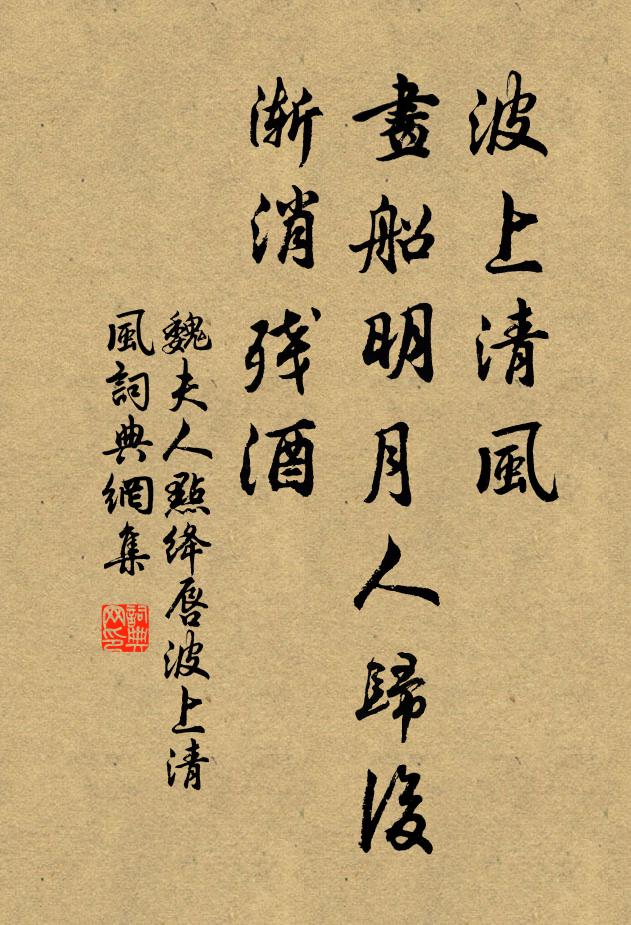 波上清風
畫船明月人歸後
漸消残酒
魏夫人點绛唇波上清
風詞典網集
詞典网印